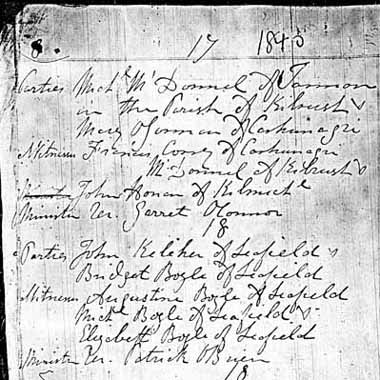 8. 17 1845
Parties Michl McDonnel of Tarmon
in the Parish of Kilrush &
Mary O'Gorman of Cashunagri
Witness Francis Conry of Cashunagri
McDonnel of Kilrush &
John Honan of Kilmichl
Minister Ver. Garret O'Connor
18
Parties John Keleher of Seafield &
Bridget Boyle of Seafield
Witness Augustine Boyle of Seafield
Michl Boyle of Seafield &
Elizabeth Boyle of Seafield
Minister Ver. Patrick O'Brien
18